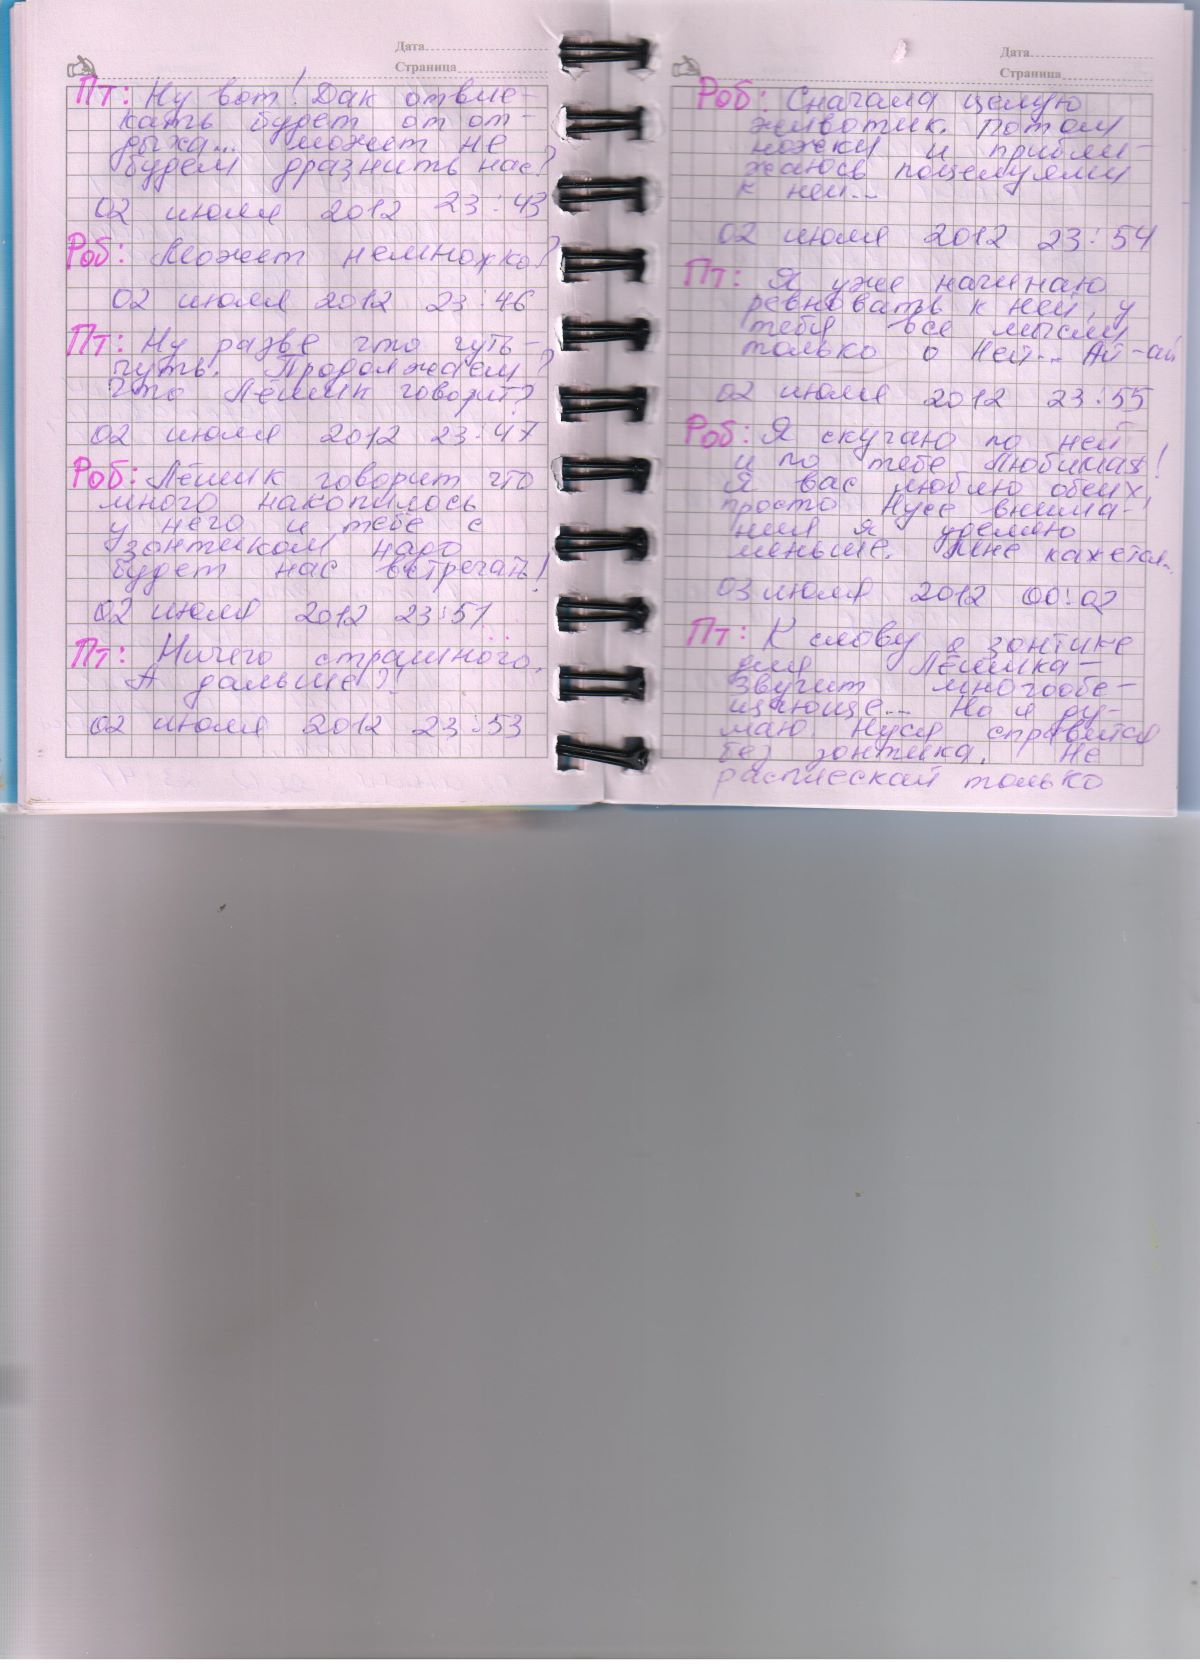 Дата
Страница
Пт: Ну вот! Дак отвле-
кать будет от от-
дыха... Может не
будем дразнить нас?
02 июля 2012 23:43
Роб: Может немножко?
02 июля 2012 23:46
Пт: Ну разве что чуть-
чуть. Продолжаем?
Что Лёшик говорит?
02 июля 2012 23:47
Роб: Лёшик говорит что
много накопилось
у него и тебе с
зонтиком надо
будет нас встречать!
02 июля 2012 23:51
Пт: Ничего страшного.
А дальше?!
02 июля 2012 23:53
Дата
Страница
Роб: Сначала целую
животик. Потом
ножки и прибли-
жаюсь поцелуями
к ней...
02 июля 2012 23:54
Пт: Я уже начинаю
ревновать к ней, у
тебя все мысли
только о Ней... Ай-ай
02 июля 2012 23:55
Роб: Я скучаю по ней
и по тебе Любимая!
Я вас люблю обеих,
просто Нусе внима-
ния я уделяю
меньше. Мне кажется...
03 июля 2012 00:02
Пт: К слову о зонтике
для Лёшика -
звучит многообе-
щающе... Но я ду-
маю Нуся справится
без зонтика. Не
расплескай только